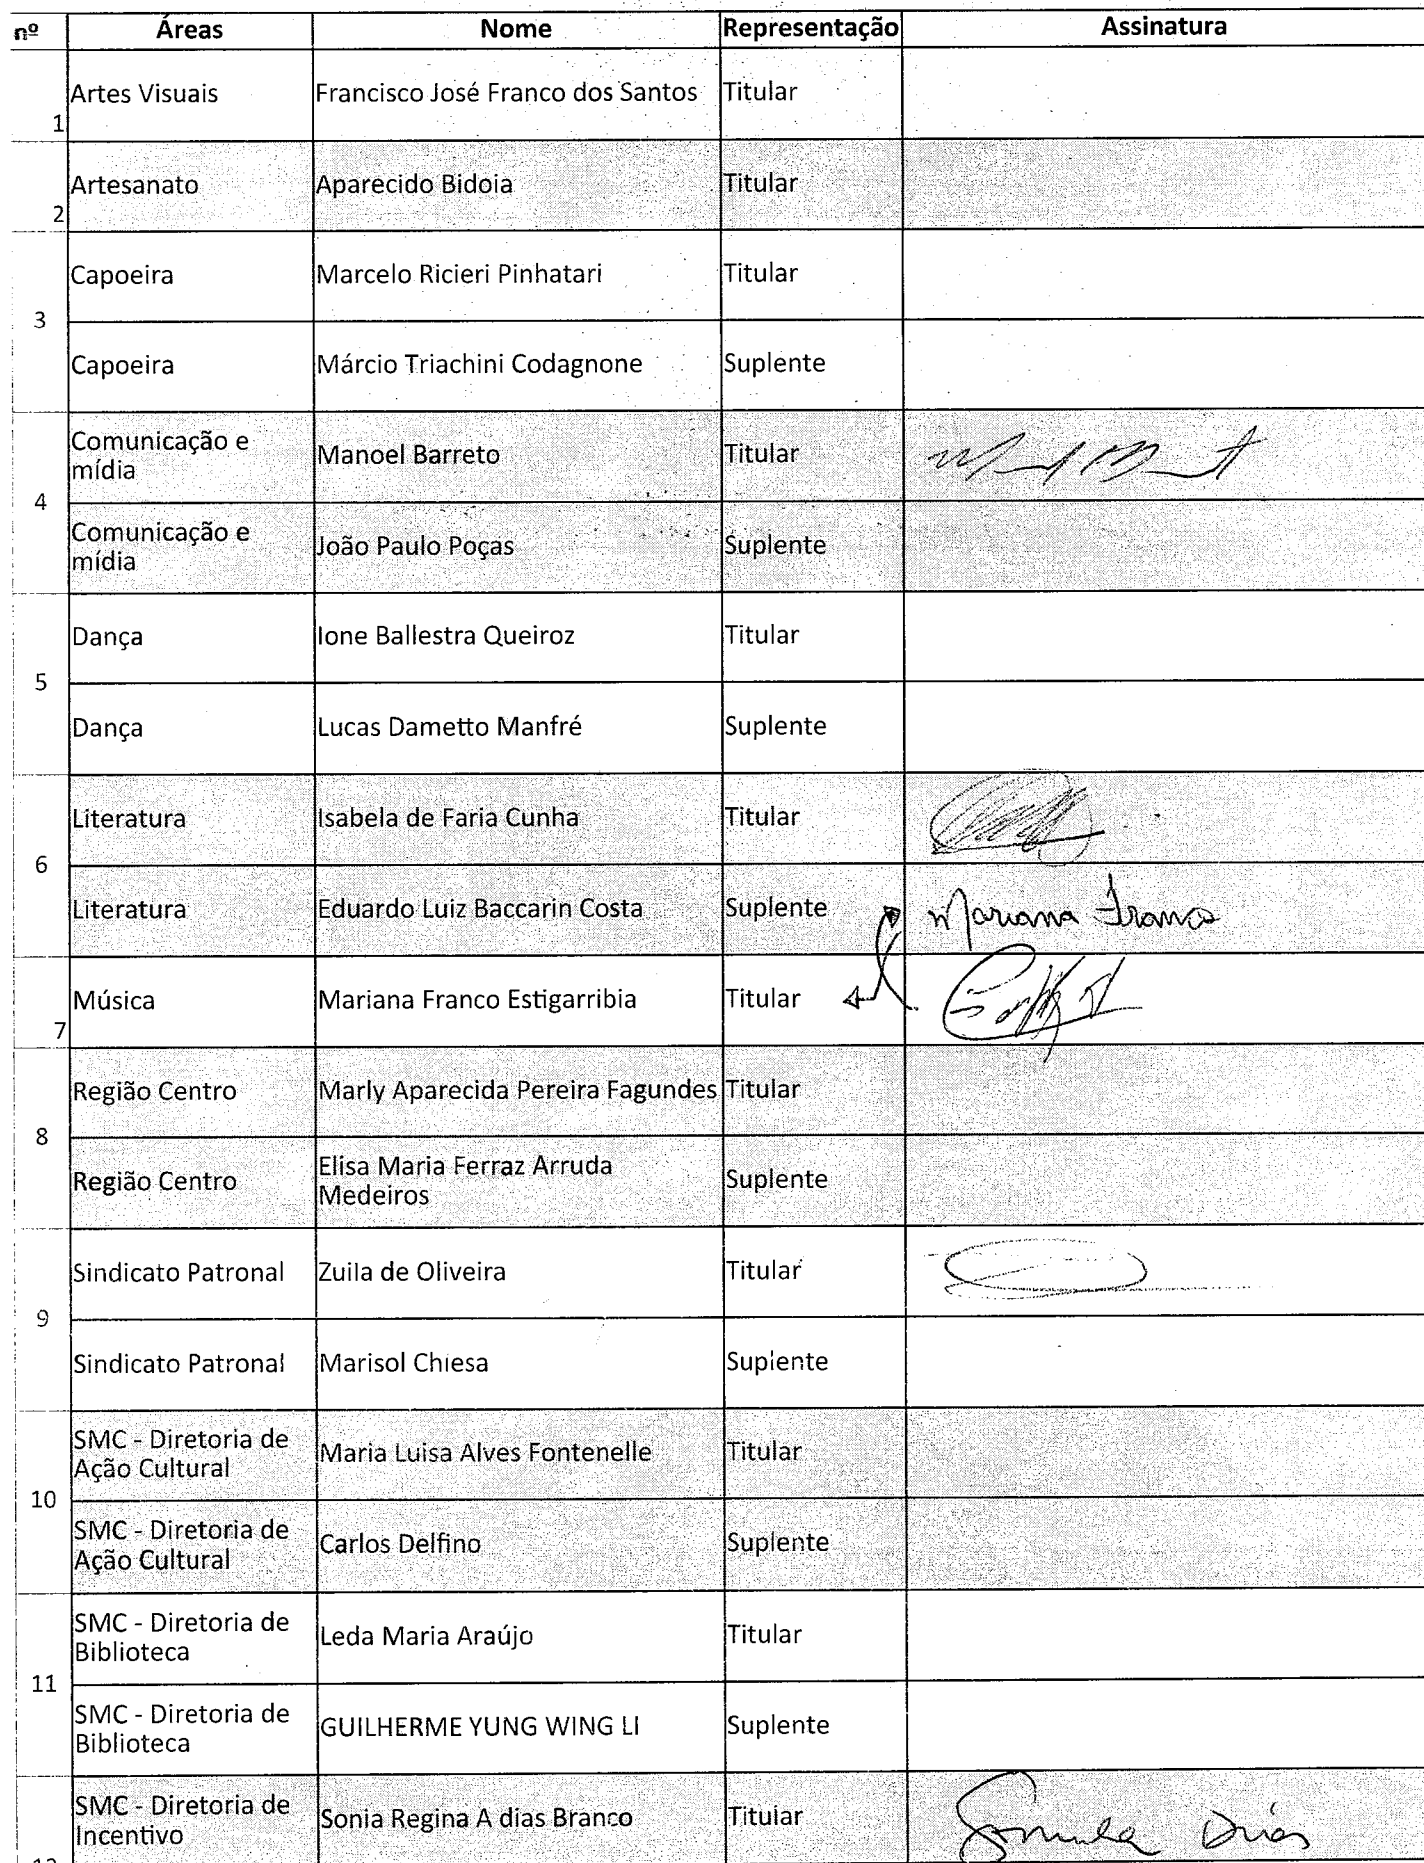 nº Áreas Nome Representação Assinatura
1 Artes Visuais Francisco José Franco dos Santos Titular
2 Artesanato Aparecido Bidoia Titular
Capoeira Marcelo Ricieri Pinhatari Titular
3
Capoeira Márcio Triachini Codagnone Suplente
Comunicação e
mídia Manoel Barreto Titular
4
Comunicação e
mídia João Paulo Poças Suplente
Dança Ione Ballestra Queiroz Titular
5
Dança Lucas Dametto Manfré Suplente
Literatura Isabela de Faria Cunha Titular
6
Literatura Eduardo Luiz Baccarin Costa Suplente Mariana Franco
7 Música Mariana Franco Estigarribia Titular
Região Centro Marly Aparecida Pereira Fagundes Titular
8
Região Centro Elisa Maria Ferraz Arruda
Medeiros Suplente
Sindicato Patronal Zuila de Oliveira Titular
9
Sindicato Patronal Marisol Chiesa Suplente
SMC - Diretoria de
Ação Cultural Maria Luisa Alves Fontenelle Titular
10
SMC - Diretoria de
Ação Cultural Carlos Delfino Suplente
SMC - Diretoria de
Biblioteca Leda Maria Araújo Titular
11
SMC - Diretoria de
Biblioteca GUILHERME YUNG WING LI Suplente
SMC - Diretoria de
Incentivo Sonia Regina A dias Branco Titular Dias